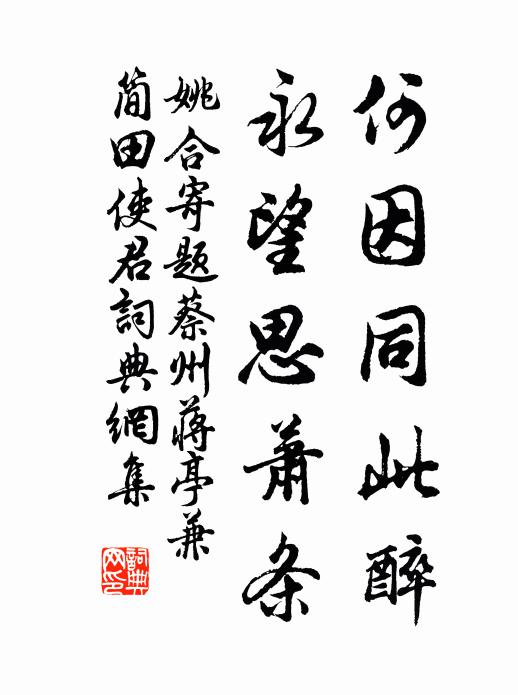 何因同此醉
永望思萧条
姚合寄题蔡州蔣亭兼
简田使君詞典網集
詞典
网印